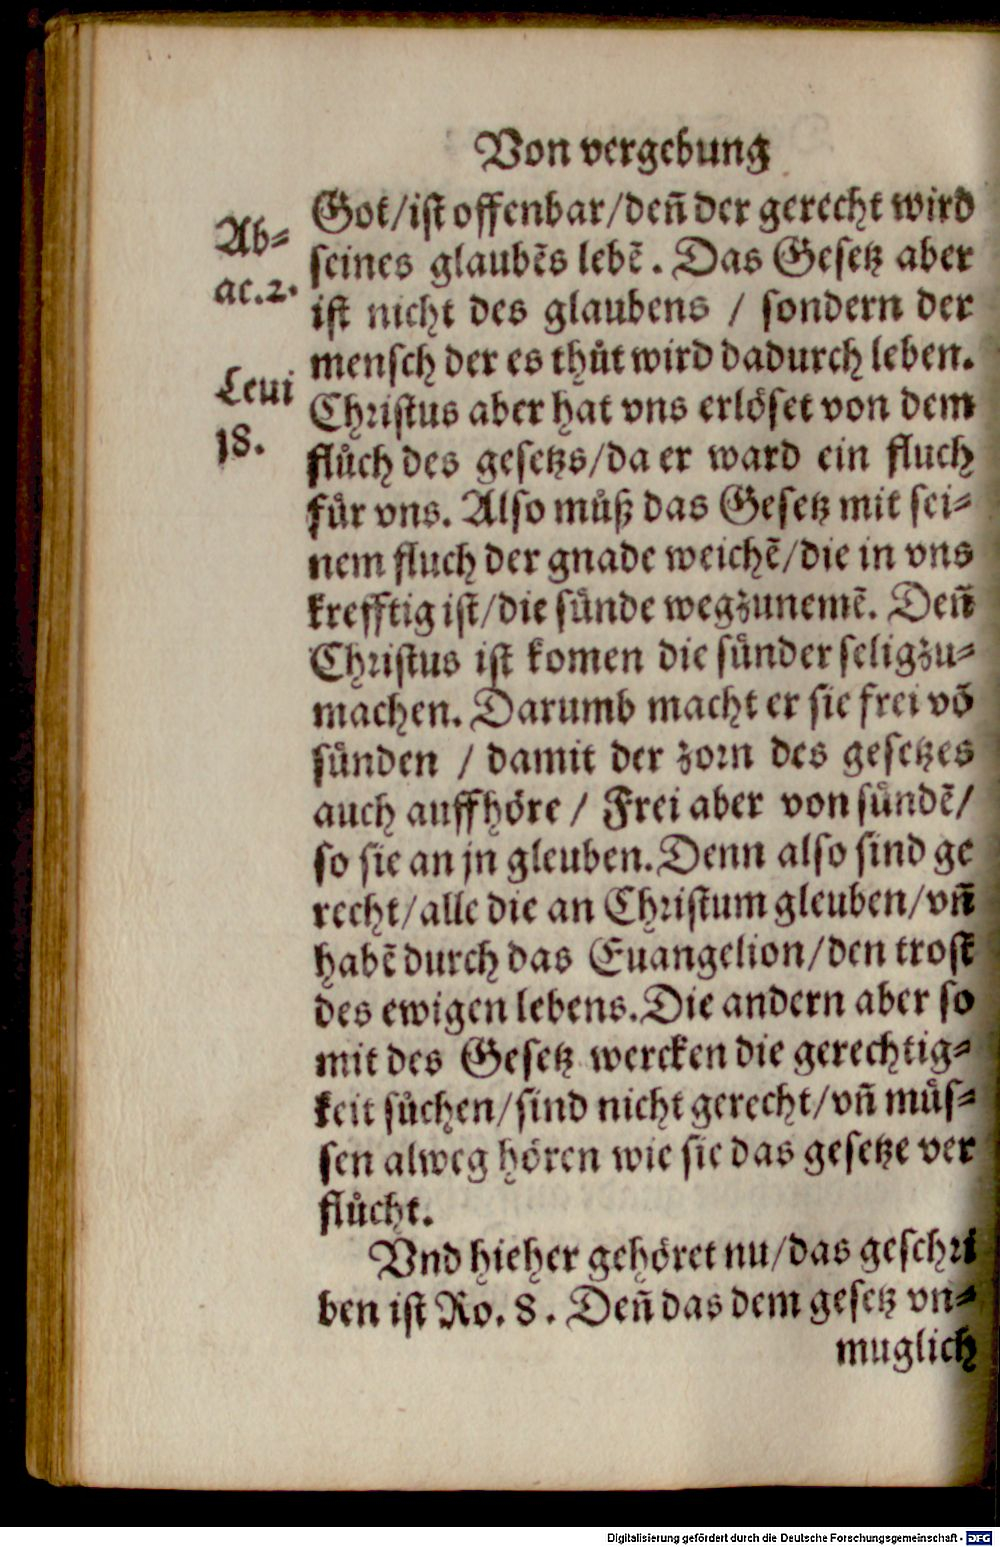 Von vergebung
Got/ist offenbar/deñ der gerecht wird
Ab=
ac.2.
seines glaubẽs lebẽ. Das Gesetz aber
ist nicht des glaubens / sondern der
mensch der es thůt wird dadurch leben.
Leui
18.
Christus aber hat vns erlöset von dem
flůch des gesetzs/da er ward ein fluch
für vns. Also můß das Gesetz mit sei=
nem fluch der gnade weichẽ/die in vns
krefftig ist/die sünde wegzunemẽ. Deñ
Christus ist komen die sünder seligzu=
machen. Darumb macht er sie frei võ
sünden / damit der zorn des gesetzes
auch auffhöre / Frei aber von sündẽ/
so sie an jn gleuben. Denn also sind ge
recht/alle die an Christum gleuben/vñ
habẽ durch das Euangelion/den trost
des ewigen lebens. Die andern aber so
mit des Gesetz wercken die gerechtig=
keit sůchen/sind nicht gerecht/vñ müs=
sen alweg hören wie sie das gesetze ver
flůcht.
Vnd hieher gehöret nu/das geschri
ben ist Ro. 8. Deñ das dem gesetz vn=
muglich
Digitalisierung gefördert durch die Deutsche Forschungsgemeinschaft - DFG